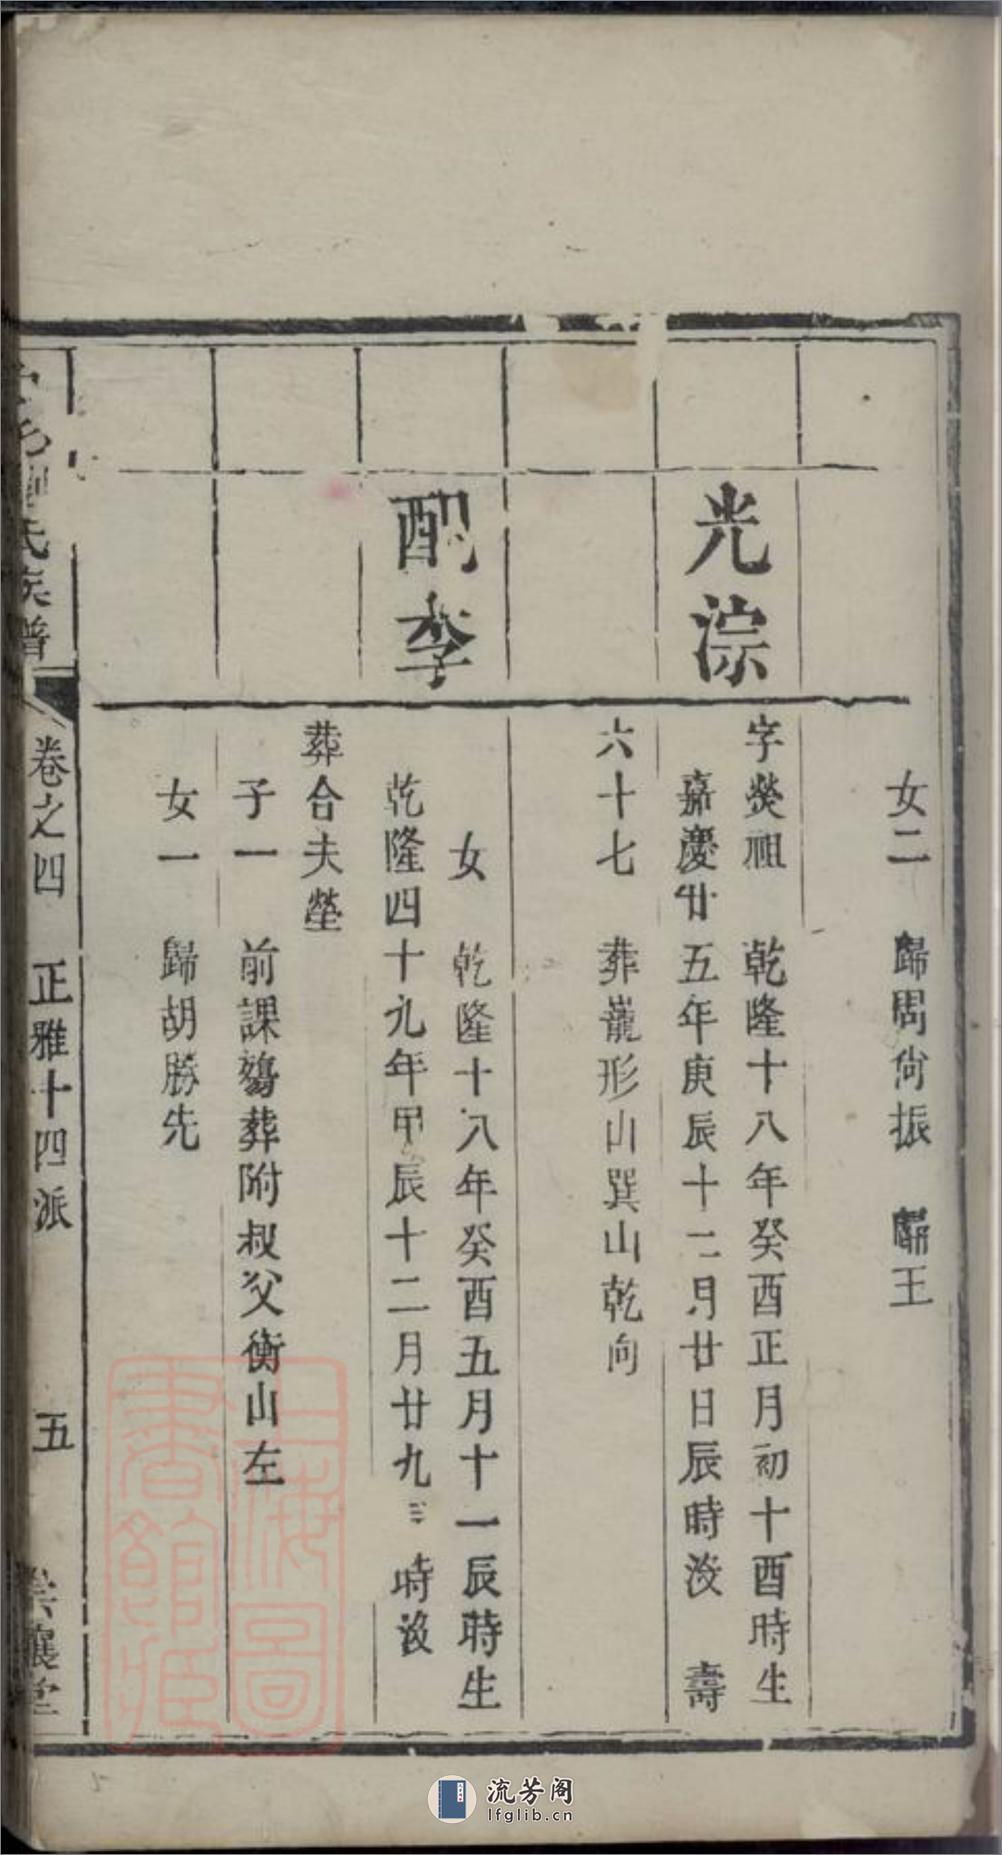 女二 歸周尙振 歸王
光淙
字熒祖 乾隆十八年癸酉正月初十酉時生
嘉慶廿五年庚辰十二月廿日辰時沒 壽
六十七 葬龍形山巽山乾向
配李
女 乾隆十八年癸酉五月十一辰時生
乾隆四十九年甲辰十二月廿九 時沒
葬合夫塋
子一 前課殤葬附叔父衡山左
女一 歸胡勝先
劉氏族譜
卷之四 正雅十四派 五 崇讓堂
上海圖書館藏
流芳阁
lfglib.cn